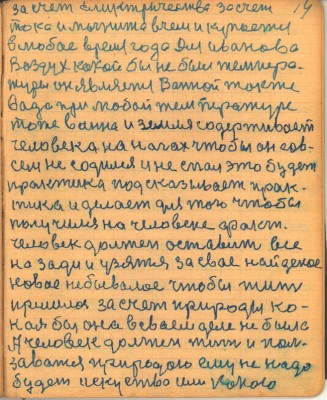 за счет електричества за счет 14
тока и магнита в чем и купается
в любое время года Для иванова
Воздух какой бы не был темпера-
туры он является Ванной тоже
Вада при любой температуре
тоже ванна и земля содерживает
человека на нагах чтобы он сов-
сем не садился и не спал это будет
практика подсказывает прак-
тика и делает для того чтобы
получился на человеке факт.
Человек должен оставит все
на зади и узятся за свае найденое
новое небывалое чтобы жит
пришлос за счет природы ка-
кая бы она в своем деле не была
А человек должен жит и пол-
зоватся природою ему не надо
будет искуство или какого